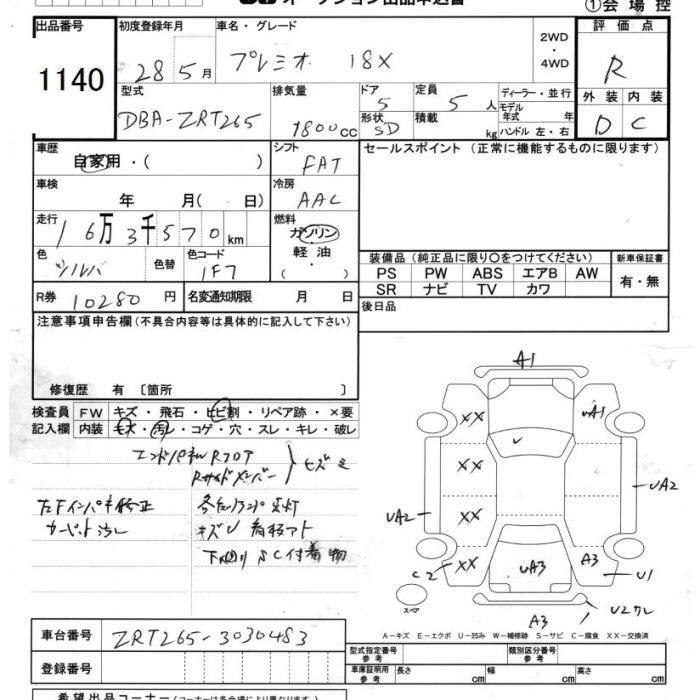 ①会場控
出品番号 初度登録年月 車名・グレード 評価点
1140 28 5月 プレミオ 18X 2WD・4WD R
型式 排気量 ドア 定員 ディーラー・並行 外装 内装
DBA-ZRT265 1800cc 5 5人 モデル年式 年 D C
形状 SD 積載 kg ハンドル 左・右
車歴 シフト セールスポイント (正常に機能するものに限ります)
自家用・( ) FAT
車検 冷房
年 月( 日) AAC
走行 燃料
16万3千570km ガソリン
軽油
・( )
色 色替 色コード
シルバ 1F7
装備品 (純正品に限り○をつけてください) 新車保証書
PS PW ABS エアB AW 有・無
SR ナビ TV カワ
R券 10280円 名変通知期限 月 日
後日品
注意事項申告欄 (不具合内容等は具体的に記入して下さい)
修復歴 有 [箇所 ]
検査員 FW キズ・飛石・ヒビ割・リペア跡・×要
記入欄 内装 キズ・汚レ・コゲ・穴・スレ・キレ・破レ
エンドパネル Rフロア
Rサイドメンバー
左Fインパネ修正
カーペット汚レ
キズU
下廻り SC付着物
A1
XX UA1
XX
UA2 XX UA2
C2 XX UA3 A3 U1
A3
スペア
A-キズ E-エクボ U-凹み W-補修跡 S-サビ C-腐食 XX-交換済
車台番号 ZRT265-3030483
登録番号
型式指定番号 参考 類別区分番号 参考
車庫証明用 参考 長さ cm 幅 cm 高さ cm
希望出品コーナー